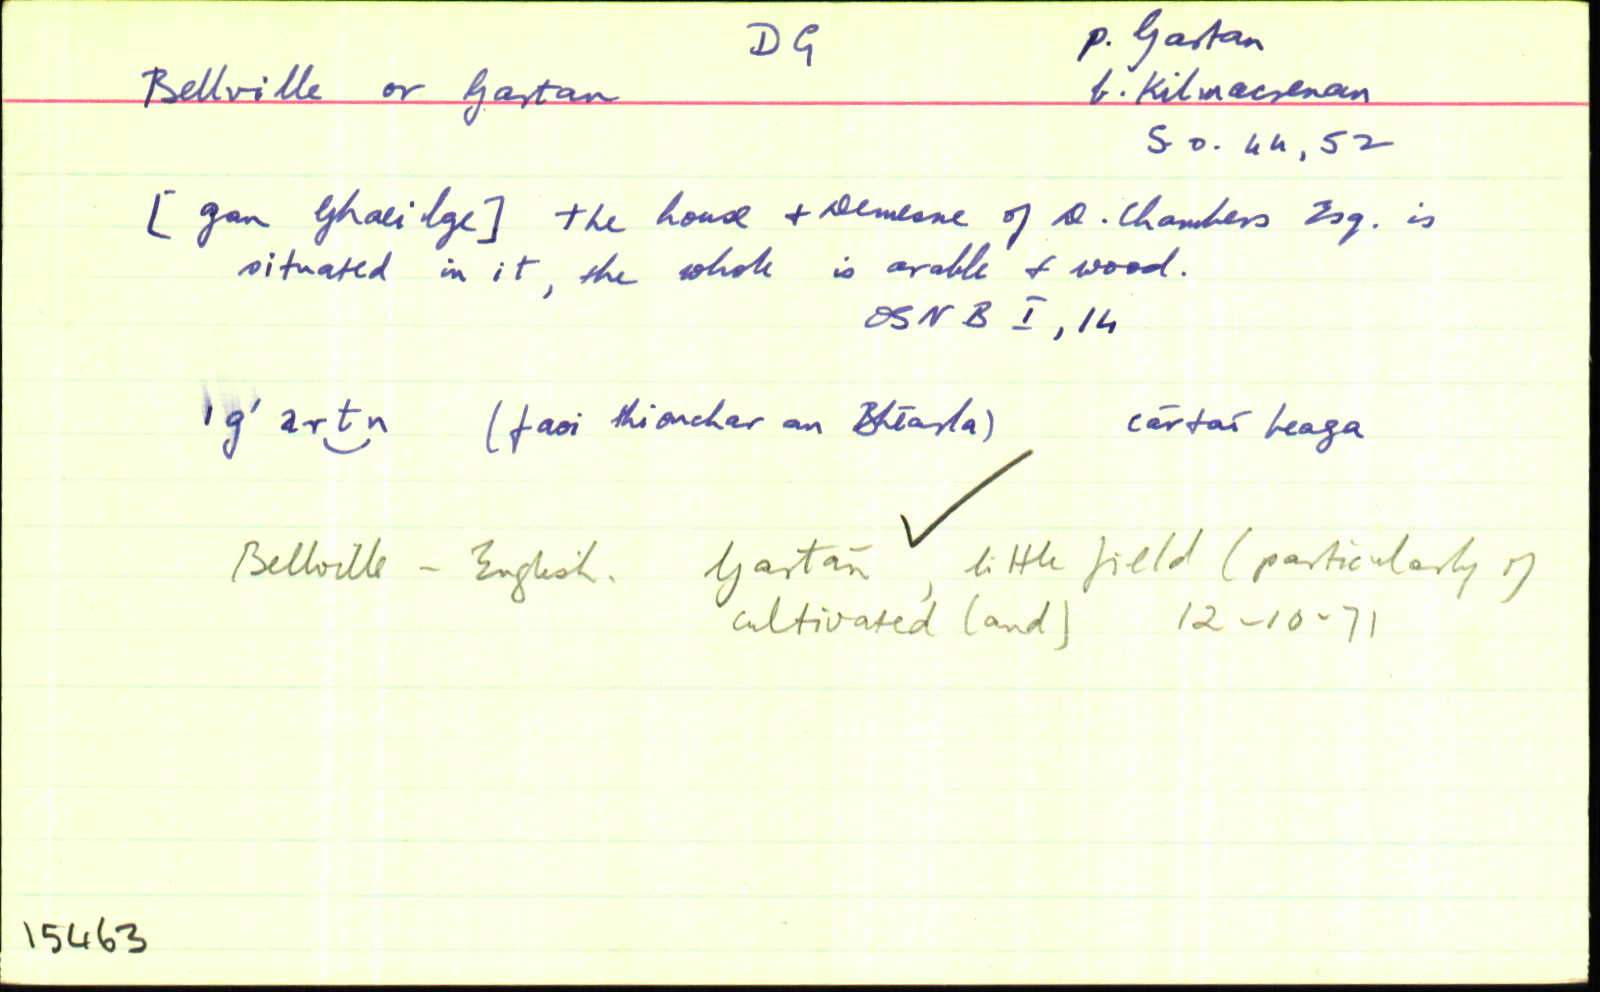 DG
p. Gartan
Bellville or Gartan
b. Kilmacrenan
S.O. 44, 52
[gan Ghaeilge] The house & Demesne of D. Chambers Esq. is
situated in it, the whole is arable & wood.
OSNB I, 14
'g' artn (faoi thionchar an Bhéarla) cártaí beaga
Bellville - English. Gartán, little field (particularly of
cultivated land) 12-10-71
15463